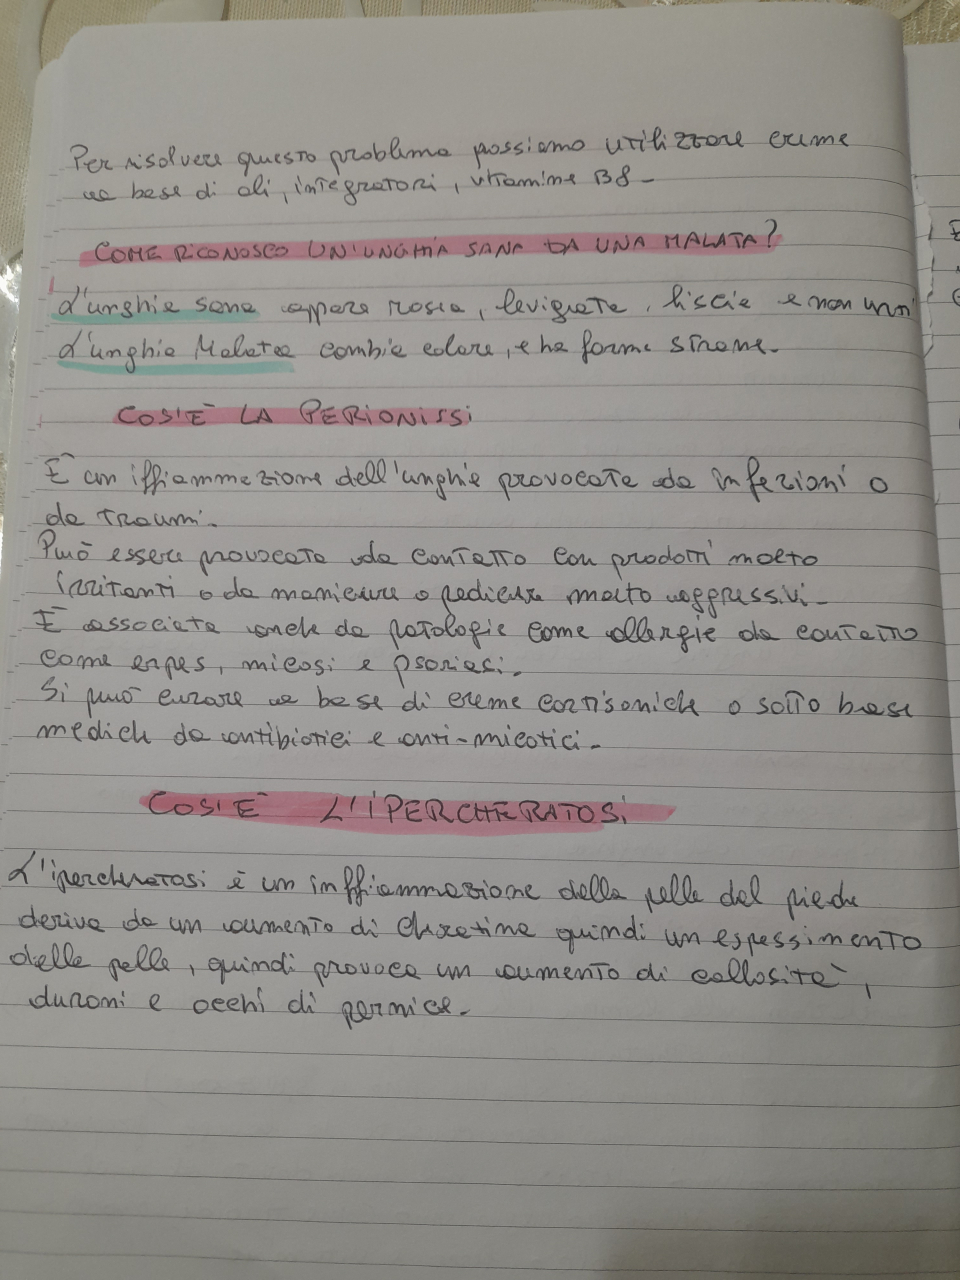 Per risolvere questo problema possiamo utilizzare creme
a base di oli, integratori, vitamine B8-
COME RICONOSCO UN'UNGHIA SANA DA UNA MALATA?
L'unghia sana appare rosea, levigata, liscia e non
L'unghia Malata cambia colore, e ha forme strane.
COS'È LA PERIONISSI
È un iffiammazione dell'unghia provocata da infezioni o
da traumi.
Può essere provocata da contatto con prodotti molto
irritanti o da manicure o pedicure molto aggressivi-
È associata anche da patologie come allergie da contatto
come erpes, micosi e psoriasi.
Si può curare a base di creme cortisoniche o sotto base
mediche da antibiotici e anti-micotici-
COS'E' L'IPERCHERATOSI
L'ipercheratosi è un inffiammazione della pelle del piede
deriva da un aumento di cheratina quindi un espessimento
della pelle, quindi provoca un aumento di callosità,
duroni e occhi di pernice-